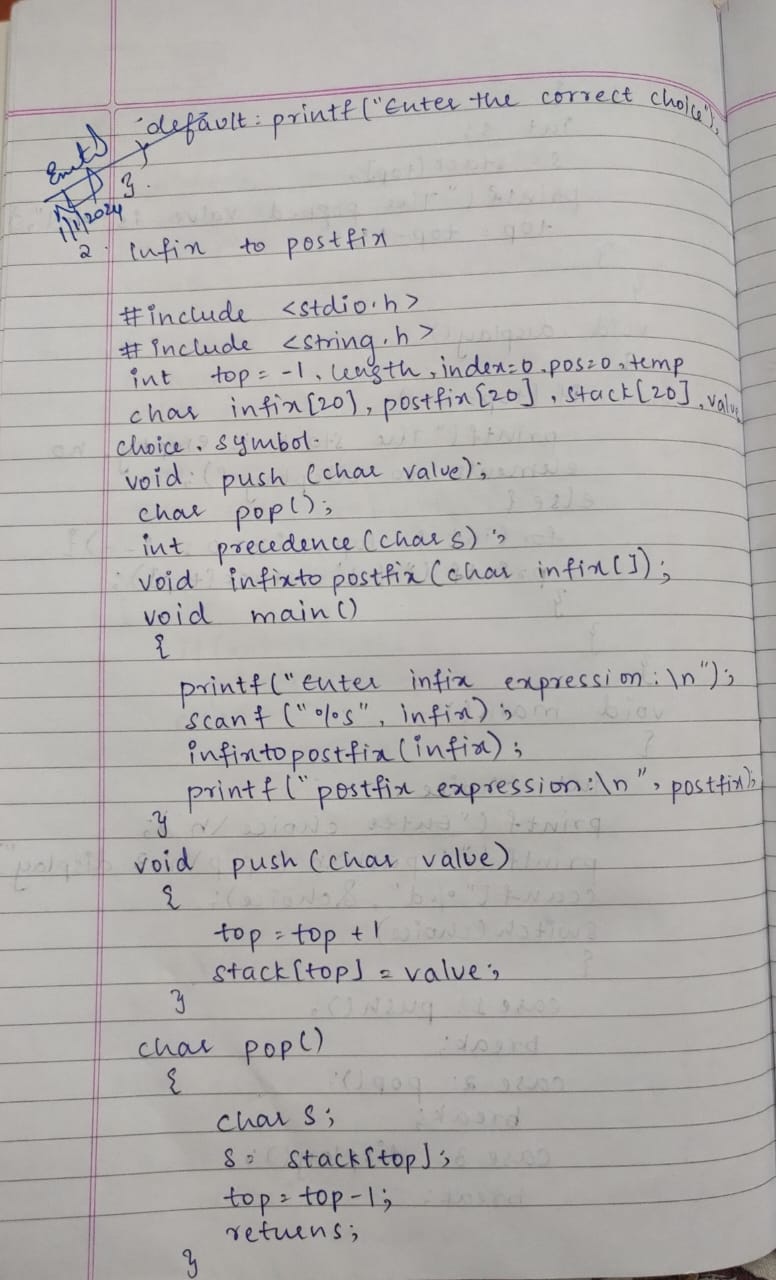 default: printf("Enter the correct choice");
}
}.
1/1/2024
2. Infix to postfix
#include <stdio.h>
#include <string.h>
int top = -1, length, index=0, pos=0, temp
char infix[20], postfix[20], stack[20], value
choice, symbol.
void push (char value);
char pop();
int precedence (char s);
void infixto postfix (char infix[]);
void main()
{
printf("Enter infix expression:\n");
scanf ("%s", infix);
infixtopostfix (infix);
printf ("postfix expression:\n", postfix);
}
void push (char value)
{
top = top + 1
stack[top] = value;
}
char pop()
{
char s;
s = stack[top];
top = top-1;
returns;
}